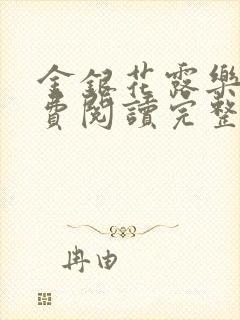 金銀花露樂
費閱讀完整
冉由